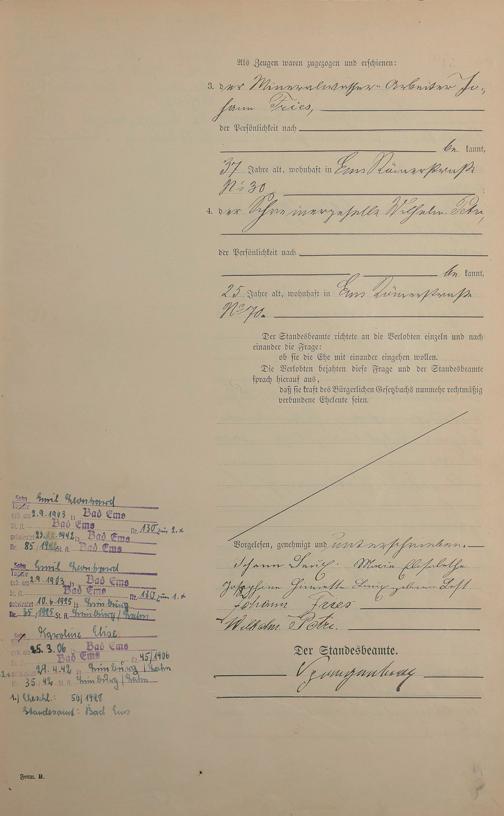 Als Zeugen waren zugezogen und erschienen:
3. der Mineralwasser-Arbeiter Jo-
hann Fries,
der Persönlichkeit nach
be kannt,
37 Jahre alt, wohnhaft in Ems Römerstraße
No 30
4. der Schreinergeselle Wilhelm Petri,
der Persönlichkeit nach
be kannt,
25 Jahre alt, wohnhaft in Ems Römerstraße
No 70.
Der Standesbeamte richtete an die Verlobten einzeln und nach
einander die Frage:
ob sie die Ehe mit einander eingehen wollen.
Die Verlobten bejahten diese Frage und der Standesbeamte
sprach hierauf aus,
daß sie kraft des Bürgerlichen Gesetzbuchs nunmehr rechtmäßig
verbundene Eheleute seien.
Vorgelesen, genehmigt und unterschrieben.
Johann Marie Elisabethe
Josephine Henriette geborene
Johann Fries
Wilhelm Petri.
Der Standesbeamte.
Sohn Emil Leonhard
2.9.1903 in Bad Ems
St. A. Bad Ems Nr. 130 zu 2.
1942 Bad Ems
Nr. 85/ St. A. Bad Ems
Sohn Emil Leonhard
2.9.1903 Bad Ems
Bad Ems Nr. 130 zu 1.
10.4.1925 Limburg
Nr. 35/1925 St. A. Limburg/Lahn
Karoline Elise
25.3.06 Bad Ems
Bad Ems Nr. 45/1906
29.4.42 Limburg/Lahn
35/42 Limburg/Lahn
1) Eheschl: 50/1928
Standesamt: Bad Ems
Form. B.